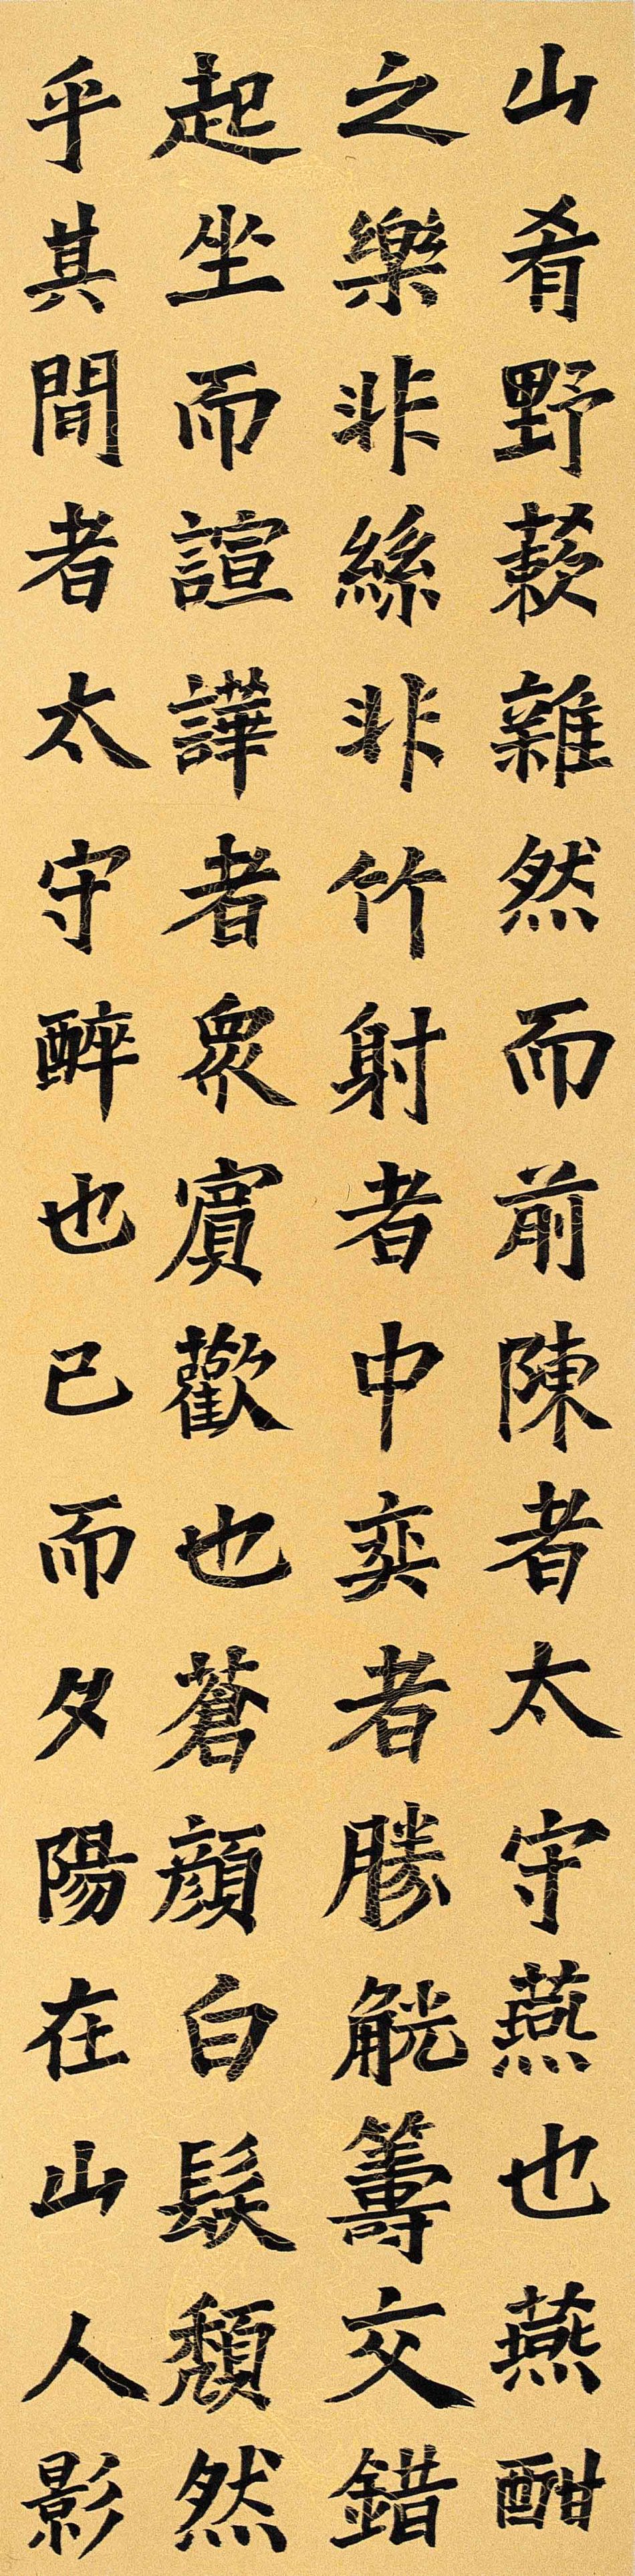 山肴野蔌雜然而前陳者太守燕也燕酣
之樂非絲非竹射者中奕者勝觥籌交錯
起坐而諠譁者衆賓歡也蒼顔白髮頹然
乎其間者太守醉也已而夕陽在山人影